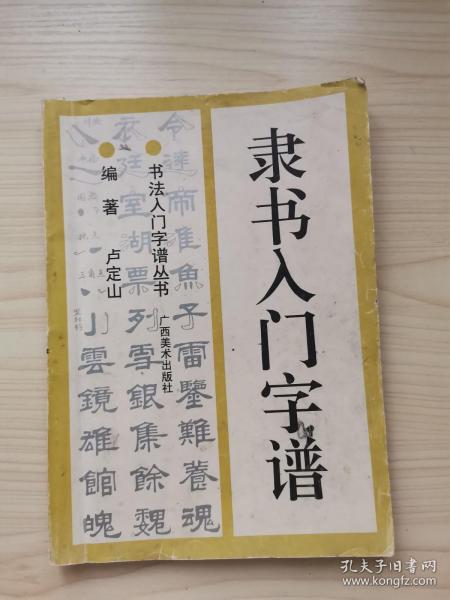 隶书入门字谱
书法入门字谱丛书
广西美术出版社
编著 卢定山
令 帝隹魚子雷鑒難養魂
衣廷室胡票列雪銀集餘魏
小雲鏡雄館魄
孔夫子旧书网
www.kongfz.com